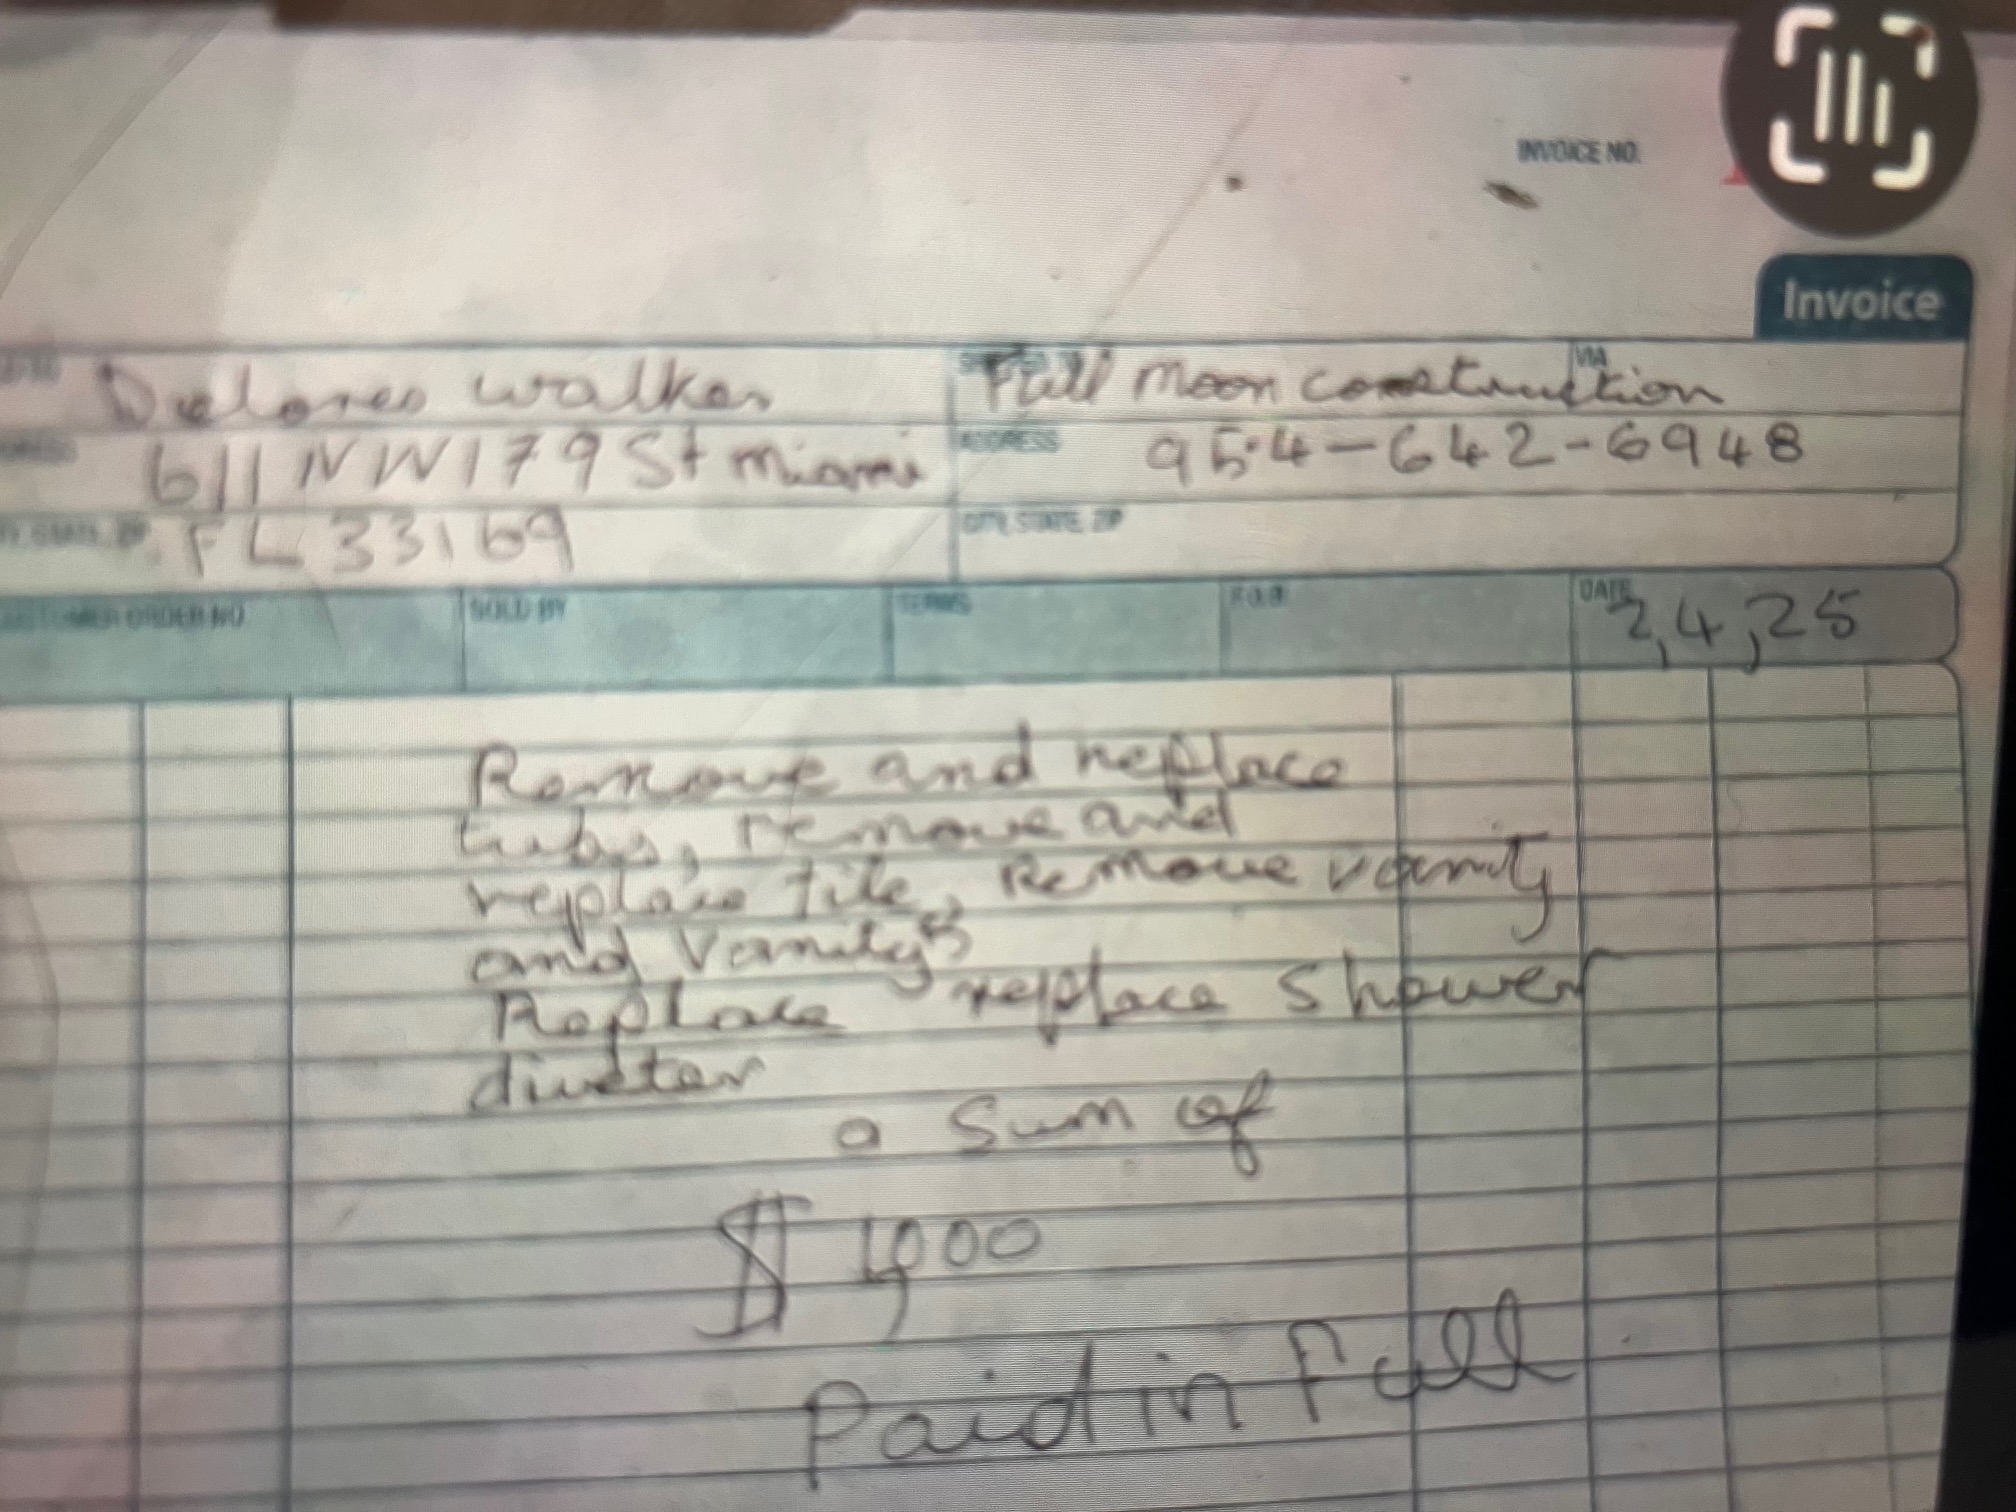 INVOICE NO.
Invoice
Delores walker
Full moon construction
VIA
611 NW 179 St miami
ADDRESS
954-642-6948
FL 33169
CITY, STATE, ZIP
CUSTOMER ORDER NO
SOLD BY
TERMS
F.O.B
DATE
2,4,25
Remove and replace
tubs, remove and
replace tile, Remove vanity
and vanity's
Replace replace shower
a sum of
$ 1,000
Paid in Full